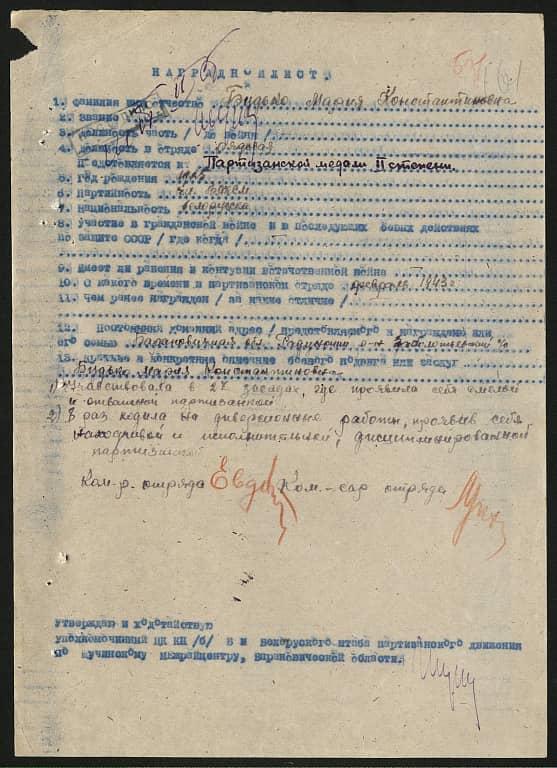 НАГРАДНОЙ ЛИСТ.
1. фамилия имя отчество Будько Мария Константиновна
2. звание
3. должность часть
4. должность в отряде рядовая
Представляется к Партизанской медали II степени.
5. Год рождения
6. Партийность
7. Национальность белоруска
8. Участие в гражданской войне и в последующих боевых действиях
по защите СССР / где когда /
9. Имеет ли ранения и контузии в отечественной войне
10. С какого времени в партизанском отряде февраль 1943 г.
11. чем ранее награжден / за какие отличие /
12. Постоянный домашний адрес / представляемого к награждению или
его семьи Барановичская обл.
13. краткое и конкретное описание боевого подвига или заслуг
Будько Мария Константиновна
1) Учавствовала в 2х засадах, где проявила себя смелой
и отважной партизанкой
2) 3 раз ходила на диверсионные работы, проявив себя
находчивой и исполнительной, дисциплинированной
партизанкой
Ком-р. отряда Ком.-сар отряда
Утверждаю и ходотайствую
уполномоченный ЦК КП /б/ Б и Белоруского штаба партизанского движения
по Щучинскому межрайцентру, Барановической области.